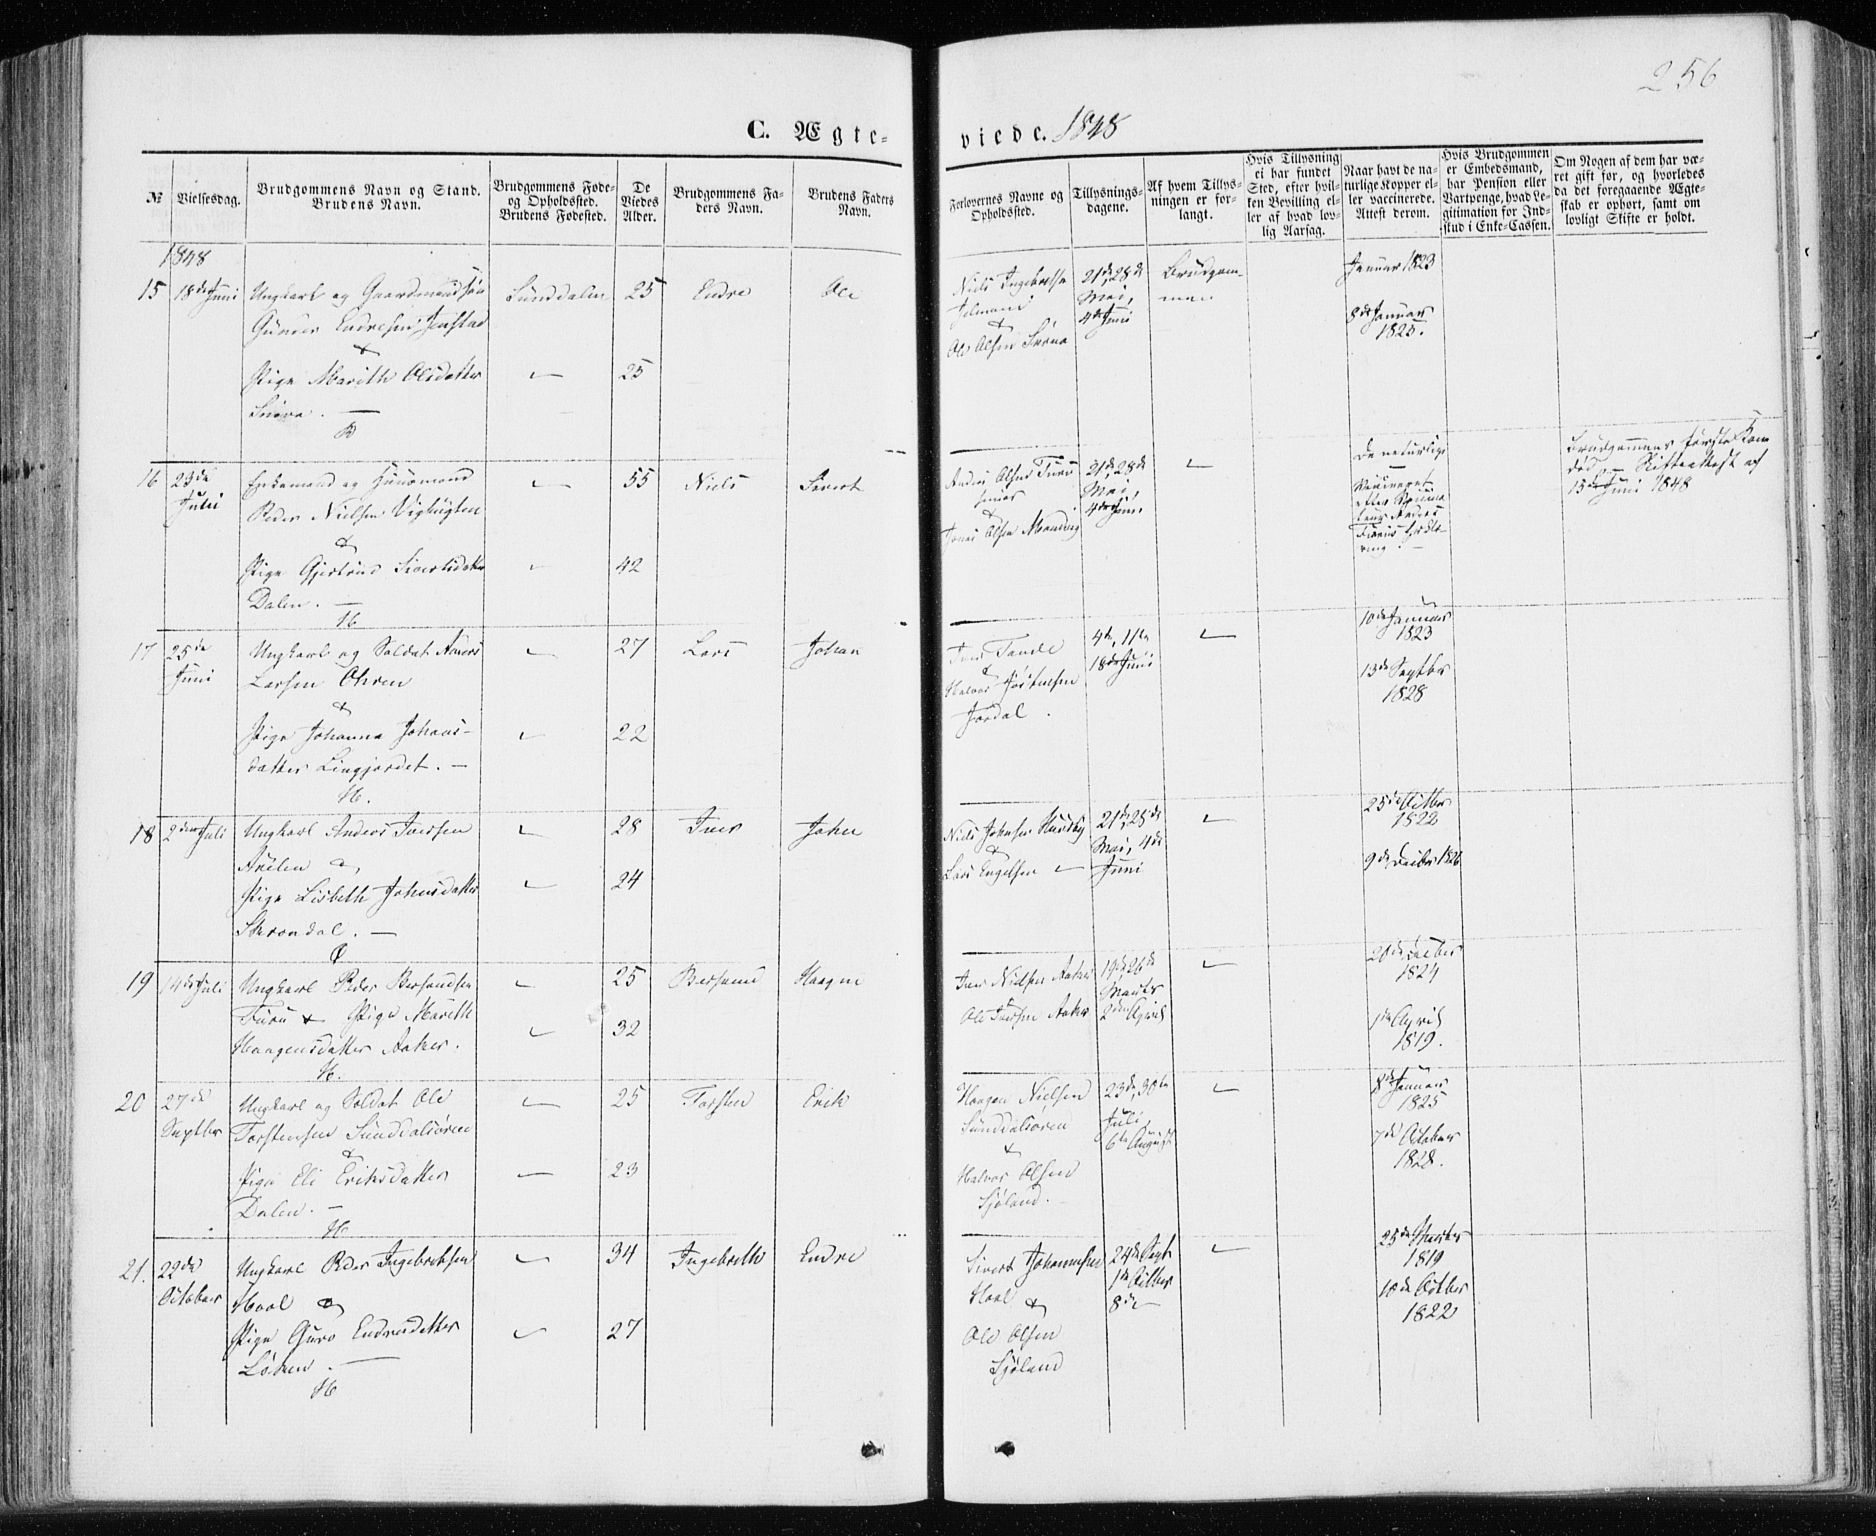 256
C. Ægte-
viede. 1848
№
Vielsesdag.
Brudgommens Navn og Stand.
Brudens Navn.
Brudgommens Føde-
og Opholdssted.
Brudens Fødested.
De
Viedes
Alder.
Brudgommens Fa-
ders Navn.
Brudens Faders
Navn.
Forlovernes Navne og
Opholdssted.
Tillysnings-
dagene.
Af hvem Tillys-
ningen er for-
langt.
Hvis Tillysning
ei har fundet
Sted, efter hvil-
ken Bevilling el-
ler af hvad lov-
lig Aarsag.
Naar havt de na-
turlige Kopper el-
ler vaccinerede.
Attest derom.
Hvis Brudgommen
er Embedsmand,
har Pension eller
Vartpenge, hvad Le-
gitimation for Ind-
skud i Enke-Cassen.
Om Nogen af dem har væ-
ret gift før, og hvorledes
da det foregaaende Ægte-
skab er ophørt, samt om
lovligt Skifte er holdt.
1848
15 18de Juni Ungkarl og Gaardmandsøn Sunddalen 25 Endre Ole
Gunder Endresen
&
Pige Marith Olsdatter 25
Niels Ingebrethsen
&
Ole Olsen
21de, 28de
Mai,
4de Juni
Brudgom-
men
Januar 1823
8de Januar
1825.
16 23de
Juli
Enkemand og Huusmand 55 Niels Sivert
Peder Nielsen
&
Pige Gjertrud Sivertsdatter 42
Dalen.
Anders Olsen Furu
&
Jonas Olsen
21de, 28de
Mai,
4de Juni
De naturlige
Brudgommens første Kone
død. Skifteattest af
15de Juni 1848
17 25de
Juni
Ungkarl og Soldat Anders 27 Lars Johan
Larsen Ohren
&
Pige Johanna Johans- 22
datter
Iver Tande
&
Halvor
Jordal.
4de, 11te
18de Juni
10de Januar
1823
13de Septbr
1828
18 2den Juli Ungkarl Anders Iversen 28 Iver John
&
Pige Lisbeth Johnsdatter 24
Niels Johnsen
&
Lars Engelsen
21de, 28de
Mai, 4de
Juni
25de Octbr
1822
9de Decbr 1826
19 14de Juli Ungkarl Peder 25 Haagen
Furu & Pige Marith 32
Haagensdatter Aaker.
Iver Nielsen Aaker
Ole Iversen Aaker
19de, 26de
Marts
2den April
20de Decbr
1824
1ste April
1819.
20 27de
Septbr
Ungkarl og Soldat Ole 25 Torsten Erik
Torstensen Sunddalsøren
&
Pige Eli Eriksdatter 23
Dalen.
Haagen Nielsen
Sunddalsøren
&
Halvor Olsen
Sjøland.
23de, 30te
Juli,
6te August
8de Januar
1825
7de October
1828.
21. 22de
October
Ungkarl Peder Ingebrethsen 34 Ingebreth Endre
Hoel &
Pige Guro Endresdatter 27
Løken.
Sivert Johannesen
Hoel
&
Ole Olsen
Sjøland
24de Sept
1ste Octbr
8de
25de Marts
1819
18de Octbr
1822